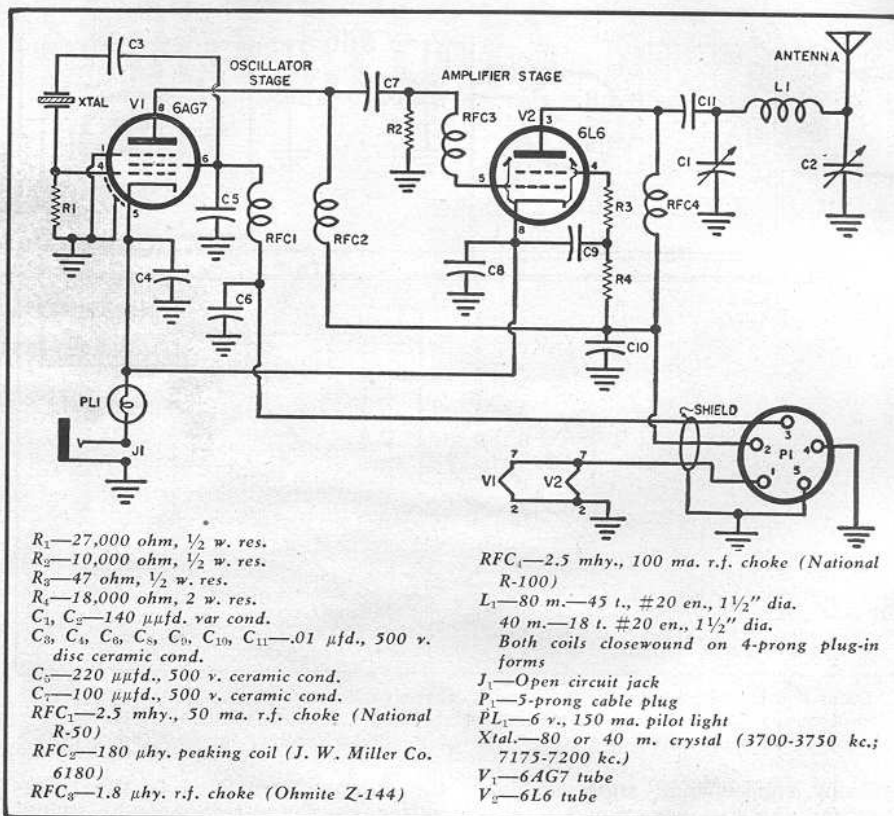 C3
XTAL
V1
6AG7
OSCILLATOR
STAGE
8
1
4
6
5
R1
C4
C5
C6
RFC1
RFC2
C7
R2
AMPLIFIER STAGE
RFC3
V2
3
6L6
5
4
8
R3
C8
C9
R4
C10
RFC4
C11
L1
ANTENNA
C1
C2
PL1
J1
SHIELD
3
2
P1
4
1
5
V1
7
2
V2
7
2
R₁—27,000 ohm, ½ w. res.
R₂—10,000 ohm, ½ w. res.
R₃—47 ohm, ½ w. res.
R₄—18,000 ohm, 2 w. res.
C₁, C₂—140 μμfd. var cond.
C₃, C₄, C₆, C₈, C₉, C₁₀, C₁₁—.01 μfd., 500 v.
disc ceramic cond.
C₅—220 μμfd., 500 v. ceramic cond.
C₇—100 μμfd., 500 v. ceramic cond.
RFC₁—2.5 mhy., 50 ma. r.f. choke (National
R-50)
RFC₂—180 μhy. peaking coil (J. W. Miller Co.
6180)
RFC₃—1.8 μhy. r.f. choke (Ohmite Z-144)
RFC₄—2.5 mhy., 100 ma. r.f. choke (National
R-100)
L₁—80 m.—45 t., #20 en., 1½" dia.
40 m.—18 t. #20 en., 1½" dia.
Both coils closewound on 4-prong plug-in
forms
J₁—Open circuit jack
P₁—5-prong cable plug
PL₁—6 v., 150 ma. pilot light
Xtal.—80 or 40 m. crystal (3700-3750 kc.;
7175-7200 kc.)
V₁—6AG7 tube
V₂—6L6 tube